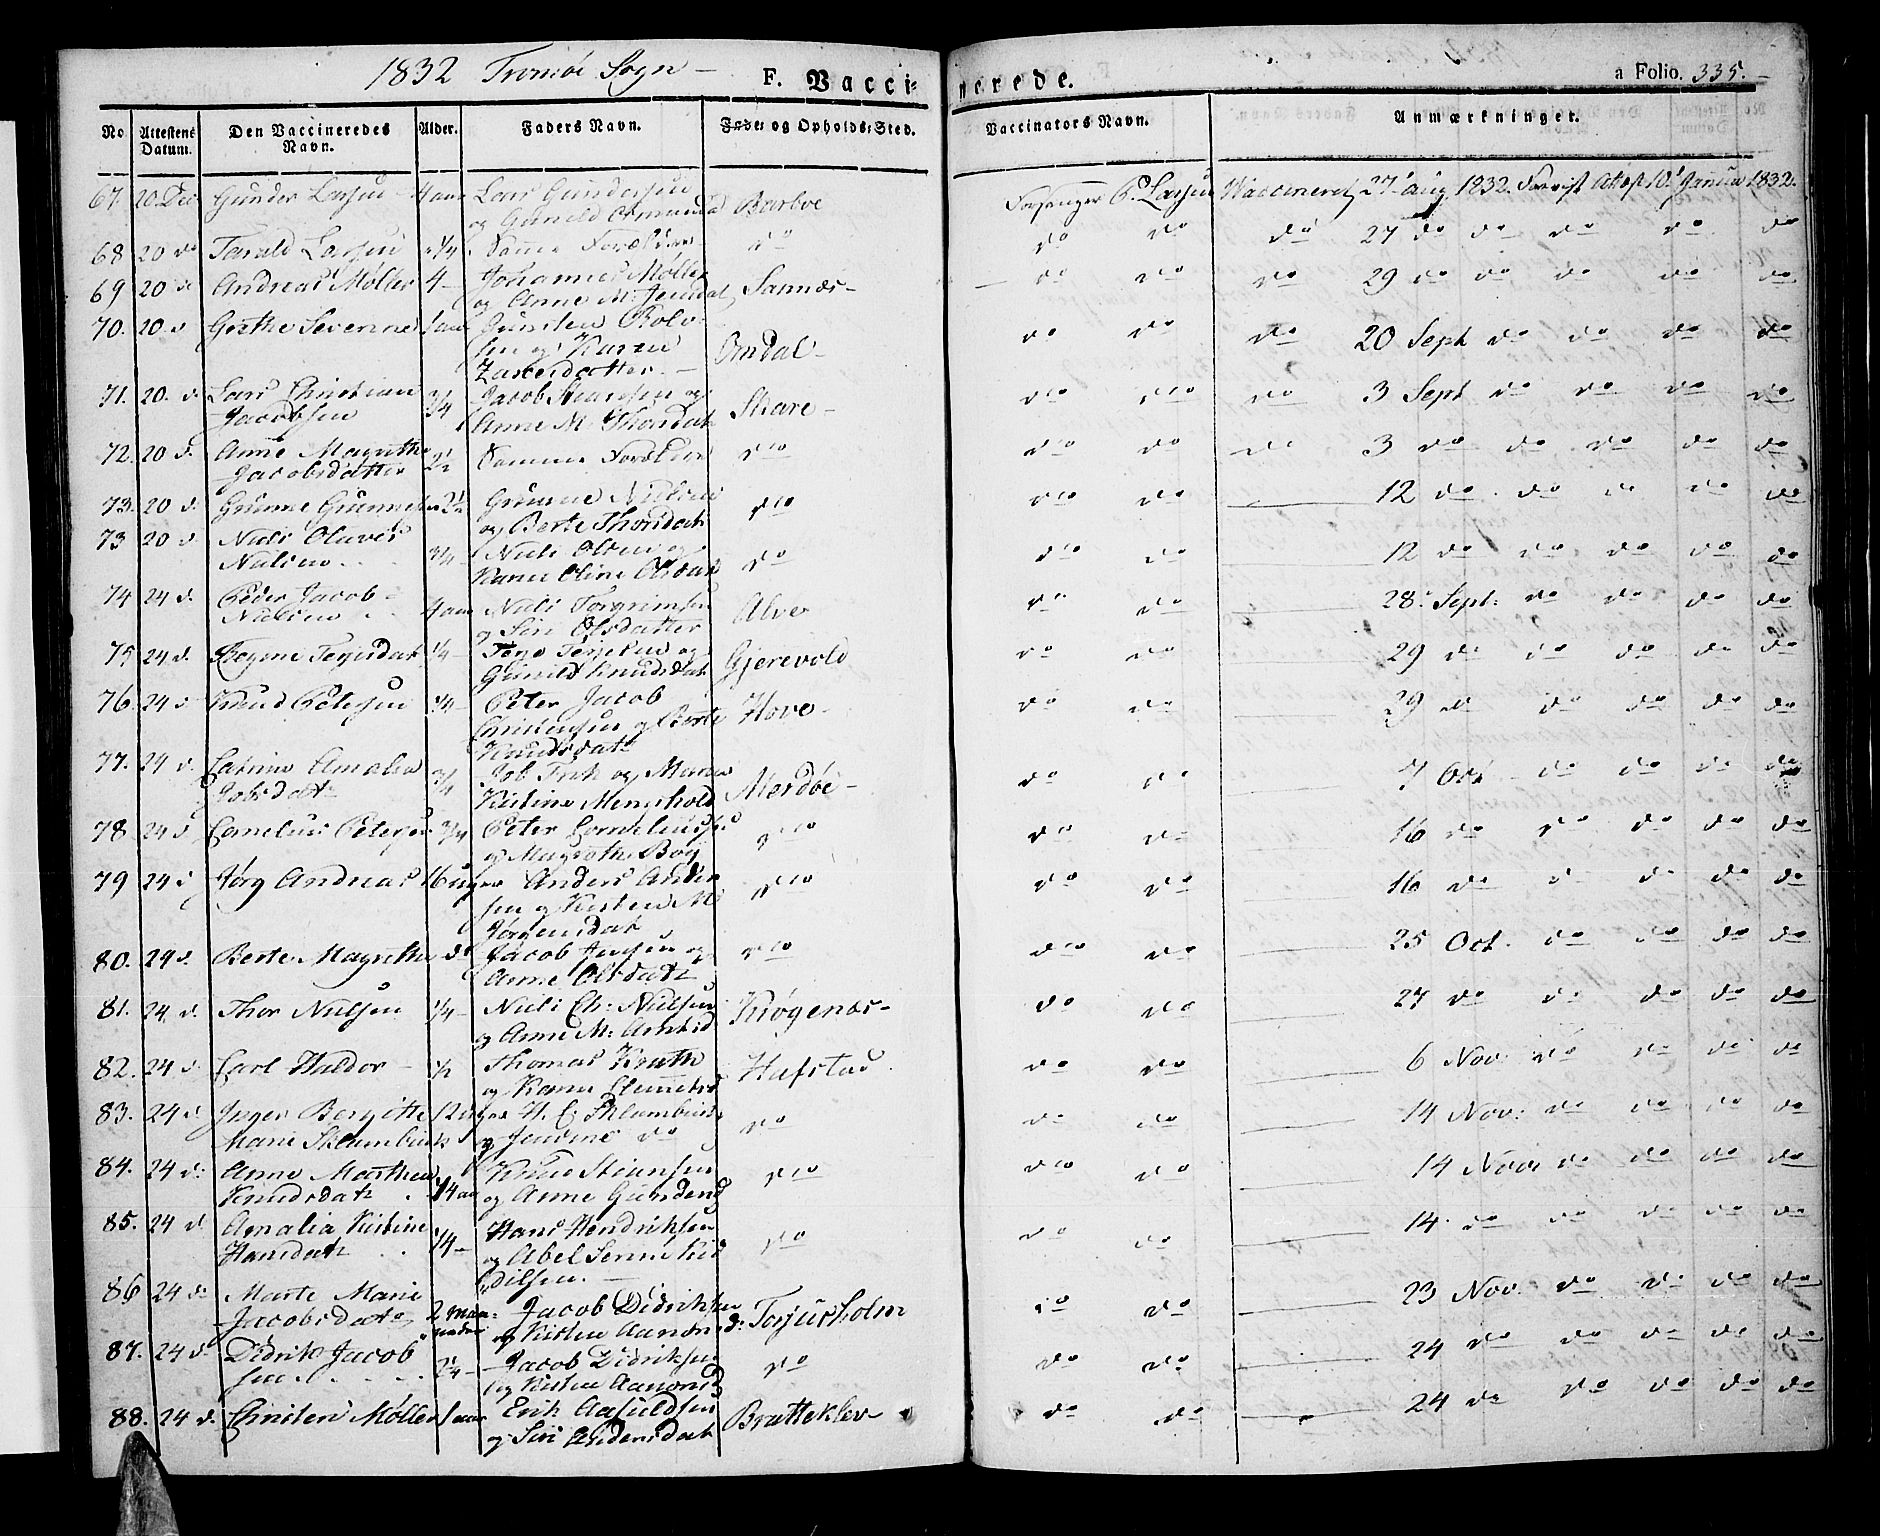 1832 Tromöe Sogn —
F. Vacci-
nerede.
a Folio. 335.
No
Attestens Datum.
Den Vaccineredes Navn.
Alder.
Faders Navn.
Føde- og Opholds-Sted.
Vaccinators Navn.
Anmærkninger.
67. 20 Dec Gunder Larsen 4 aar Lars Gundersen
og Gunild Barboe Forsanger P. Larsen Vaccineret 27 Aug 1832. 1832.
68 20 do Tarald Larsen 1/4 Samme Forældre do do do do 27 do do do do do
69 20 do Andreas Møller 4 — Johannes Møller
og Anne M. Sannes — do do do 29 do do do do do
70. 20 d Gerthe Severine 1 aar
og Karen Omdal — do do do 20 Sept do do do do
71. 20. d. Lars Christian
Jacobsen 3/4 Jacob Steansen og
Anne M. Thorsdatr Skare — do do do 3 Sept do do do do
72. 20 d. Anne Magrethe
Jacobsdatter 2 1/2 Samme Forældre do do do do 3 do do do do do
73. 20 d. 2 1/2
og Berte Thorsdatr do do do 12 do do do do do
73 20 d. Niels Oluves
Nielsen 3/4 Niels Olsen og
Karen Oline Olsdatr do do do 12 do do do do do
74 24 d. Peder Jacob
Nielsen 4 aar Niels Torgrimsen
og Siri Olsdatter Alve do do 28 Sept: do do do do
75 24 d. Terjesdatr 1/4 — Terje Terjesen og
Gunild Knudsdatr Gjerevold do do 29 do do do do do
76 24 d Knud Petersen 3/4 — Peter Jacob
Christensen og Berte
Knudsdatr Hove — do do 29 do do do do do
77. 24 d. Catrine Amalia
Jobsdatr 3/4 Job Frik og Maren
Kistine Merdøe — do do 7 Oct do do do do
78. 24 d Cornelius Petersen 3/4 Peter Corneliussen
og Magrethe Boy do do do 16 do do do do do
79 24 d Jørg Andreas 16 uger Anders Ander-
sen og Kirsten M.
Jørgensdatr do do do 16 do do do do do
80. 24 d. Berte Magrethe do Jacob Jensen og
Anne Olsdatr do do do 25 Oct. do do do do
81. 24 d. Thor Nielsen 1/4 — Niels Ch: Nielsen
og Anne M: Krøgenes — do do 27 do do do do do
82. 24 d. Carl Haldor — 1/2 Thomas
og Karen Hafstad do do 6 Nov: do do do do
83. 24 d Inger Bergitte
Marie 12 uger H. C.
og Jensine do do do do 14 Nov: do do do do
84. 24 d: Anne Marthea
Knudsdatr 1/4 aar Knud Steensen
og Anne do do do 14 Nov: do do do do
85. 24 d. Amalia Kistine
Hansdatr 1/4 — Hans Hendriksen
og Abel do do do 14 do do do do do
86 24 do Marte Marie
Jacobsdatr 2 Maa-
neder Jacob Didriksen
og Kirsten Torjusholm do do 23 Nov. do do do do
87. 24 d Didrik Jacob-
sen 2 1/4 — Jacob Didriksen
og Kirsten do do do 24 do do do do do
88. 24 d. Christen Møller 1 aar Erik
og Siri Andersdatr Bratteklev do do 24 do do do do do